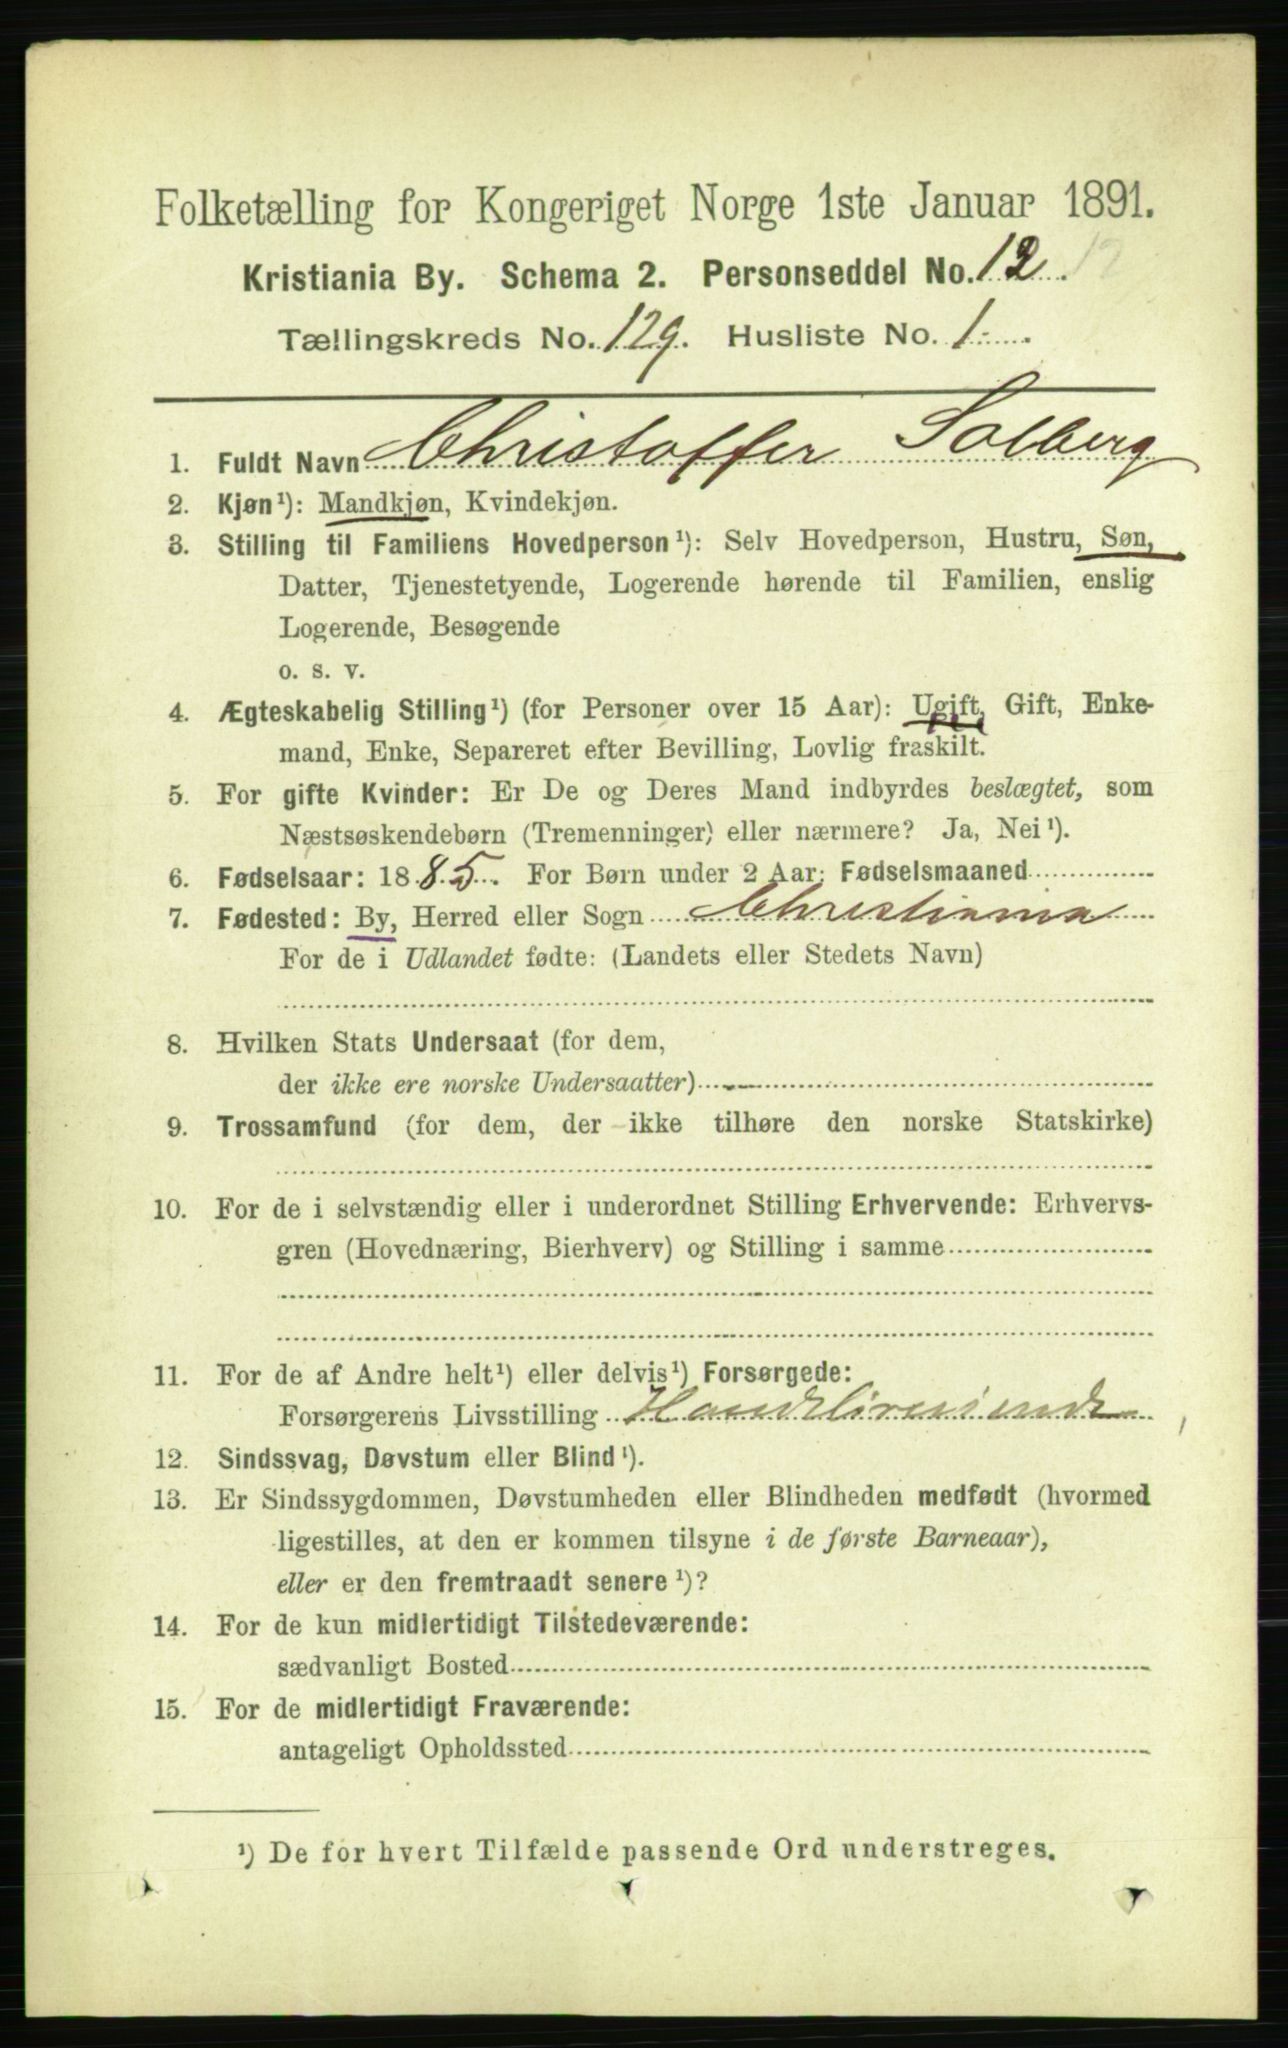 Folketælling for Kongeriget Norge 1ste Januar 1891.
Kristiania By. Schema 2. Personseddel No. 12. 12
Tællingskreds No. 129. Husliste No. 1.
1. Fuldt Navn Christoffer Solberg
2. Kjøn¹): Mandkjøn, Kvindekjøn.
3. Stilling til Familiens Hovedperson¹): Selv Hovedperson, Hustru, Søn,
Datter, Tjenestetyende, Logerende hørende til Familien, enslig
Logerende, Besøgende
o. s. v.
4. Ægteskabelig Stilling¹) (for Personer over 15 Aar): Ugift, Gift, Enke-
mand, Enke, Separeret efter Bevilling, Lovlig fraskilt.
5. For gifte Kvinder: Er De og Deres Mand indbyrdes beslægtet, som
Næstsøskendebørn (Tremenninger) eller nærmere? Ja, Nei¹).
6. Fødselsaar: 1885. For Børn under 2 Aar: Fødselsmaaned
7. Fødested: By, Herred eller Sogn Christiania
For de i Udlandet fødte: (Landets eller Stedets Navn)
8. Hvilken Stats Undersaat (for dem,
der ikke ere norske Undersaatter)
9. Trossamfund (for dem, der ikke tilhøre den norske Statskirke)
10. For de i selvstændig eller i underordnet Stilling Erhvervende: Erhvervs-
gren (Hovednæring, Bierhverv) og Stilling i samme
11. For de af Andre helt¹) eller delvis¹) Forsørgede:
Forsørgerens Livsstilling Handelsreisende
12. Sindssvag, Døvstum eller Blind¹).
13. Er Sindssygdommen, Døvstumheden eller Blindheden medfødt (hvormed
ligestilles, at den er kommen tilsyne i de første Barneaar),
eller er den fremtraadt senere¹)?
14. For de kun midlertidigt Tilstedeværende:
sædvanligt Bosted
15. For de midlertidigt Fraværende:
antageligt Opholdssted
¹) De for hvert Tilfælde passende Ord understreges.